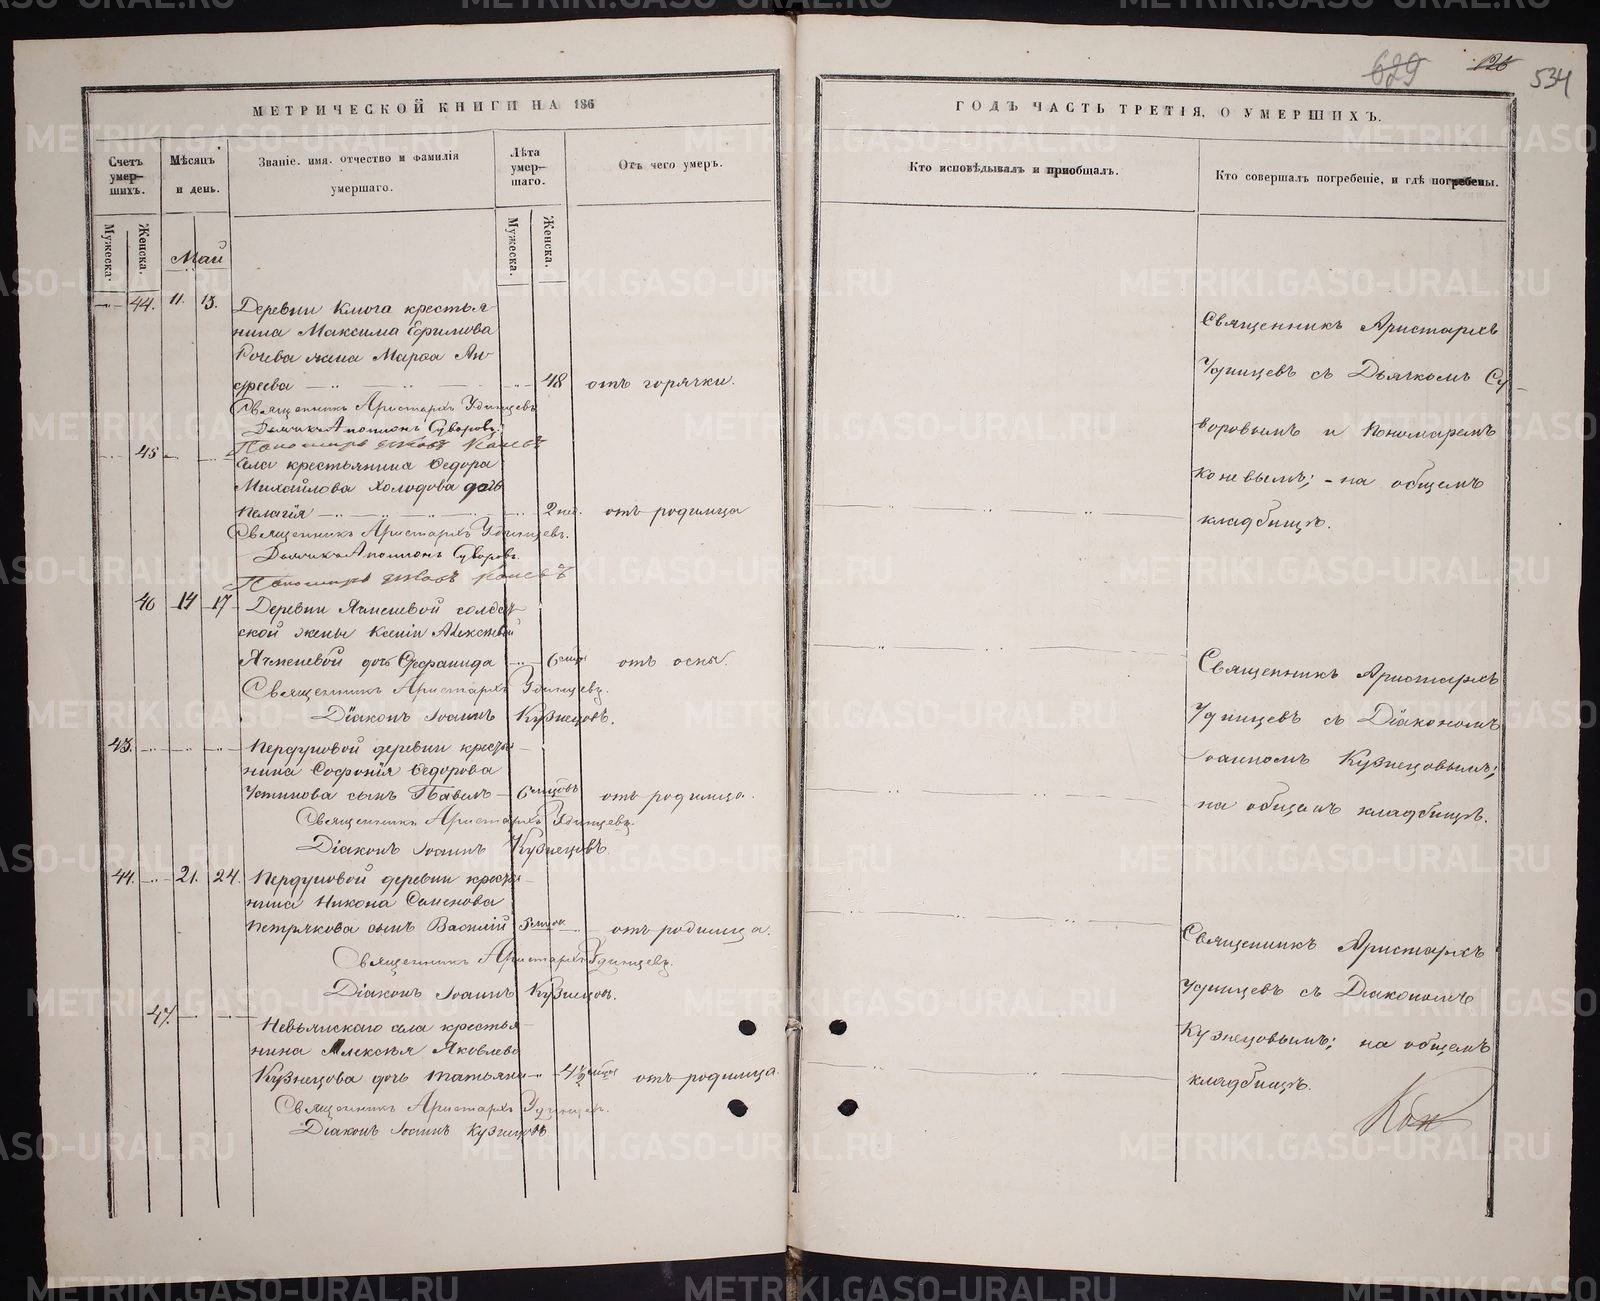 629 126 534
МЕТРИЧЕСКОЙ КНИГИ НА 186
ГОДЪ ЧАСТЬ ТРЕТІЯ, О УМЕРШИХЪ.
Счетъ умерших.
Мѣсяцъ и день.
Званіе, имя, отчество и фамилія
умершаго.
Лѣта умершаго.
Отъ чего умеръ.
Кто исповѣдывалъ и пріобщалъ.
Кто совершалъ погребеніе, и гдѣ погребены.
Мужеска.
Женска.
Мужеска.
Женска.
Май
44. 11. 13. Деревни Ключа крестья-
нина Максима Ефимова
жена Марѳа Ан-
дреева 48 отъ горячки.
Священникъ Аристархъ Удинцевъ
Дьячекъ Аполлонъ Суворовъ.
Пономарь Іаковъ Коневъ
45
Села крестьянина Ѳедора
Михайлова Холодова дочь
Пелагія 2 нед. отъ родимца
Священникъ Аристархъ Удинцевъ.
Дьячекъ Аполлонъ Суворовъ.
Пономарь Іаковъ Коневъ
46 14 17 Деревни Ячменевой солдат-
ской жены Ксеніи Алексѣевой
Ячменевой дочь Стефанида 6 отъ оспы.
Священникъ Аристархъ Удинцевъ.
Діаконъ Іоаннъ Кузнецовъ.
43. деревни крестья-
нина Софонія Ѳедорова
Устинова сынъ Павелъ 6 мцовъ отъ родимца.
Священникъ Аристархъ Удинцевъ.
Діаконъ Іоаннъ Кузнецовъ.
44. 21. 24. деревни крестья-
нина Никона Семенова
Петрякова сынъ Василій отъ родимца.
Священникъ Аристархъ Удинцевъ.
Діаконъ Іоаннъ Кузнецовъ.
47. Невьянскаго села крестья-
нина Алексѣя Яковлева
Кузнецова дочь Татьяна отъ родимца
Священникъ Аристархъ Удинцевъ.
Діаконъ Іоаннъ Кузнецовъ
Священникъ Аристархъ
Удинцевъ съ Дьячкомъ Су-
воровымъ и Пономаремъ
Коневымъ; - на общемъ
кладбищѣ.
Священникъ Аристархъ
Удинцевъ съ Діакономъ
Іоанномъ Кузнецовымъ;
на общемъ кладбищѣ.
Священникъ Аристархъ
Удинцевъ съ Діакономъ
Кузнецовымъ; на общемъ
кладбищѣ.
METRIKI.GASO-URAL.RU